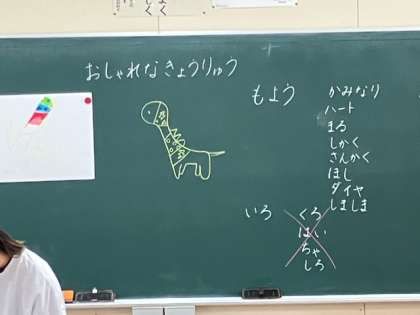 おしゃれなきょうりゅう
もよう
かみなり
ハート
まる
しかく
さんかく
ほし
ダイヤ
しましま
いろ
くろ
はい
ちゃ
しろ